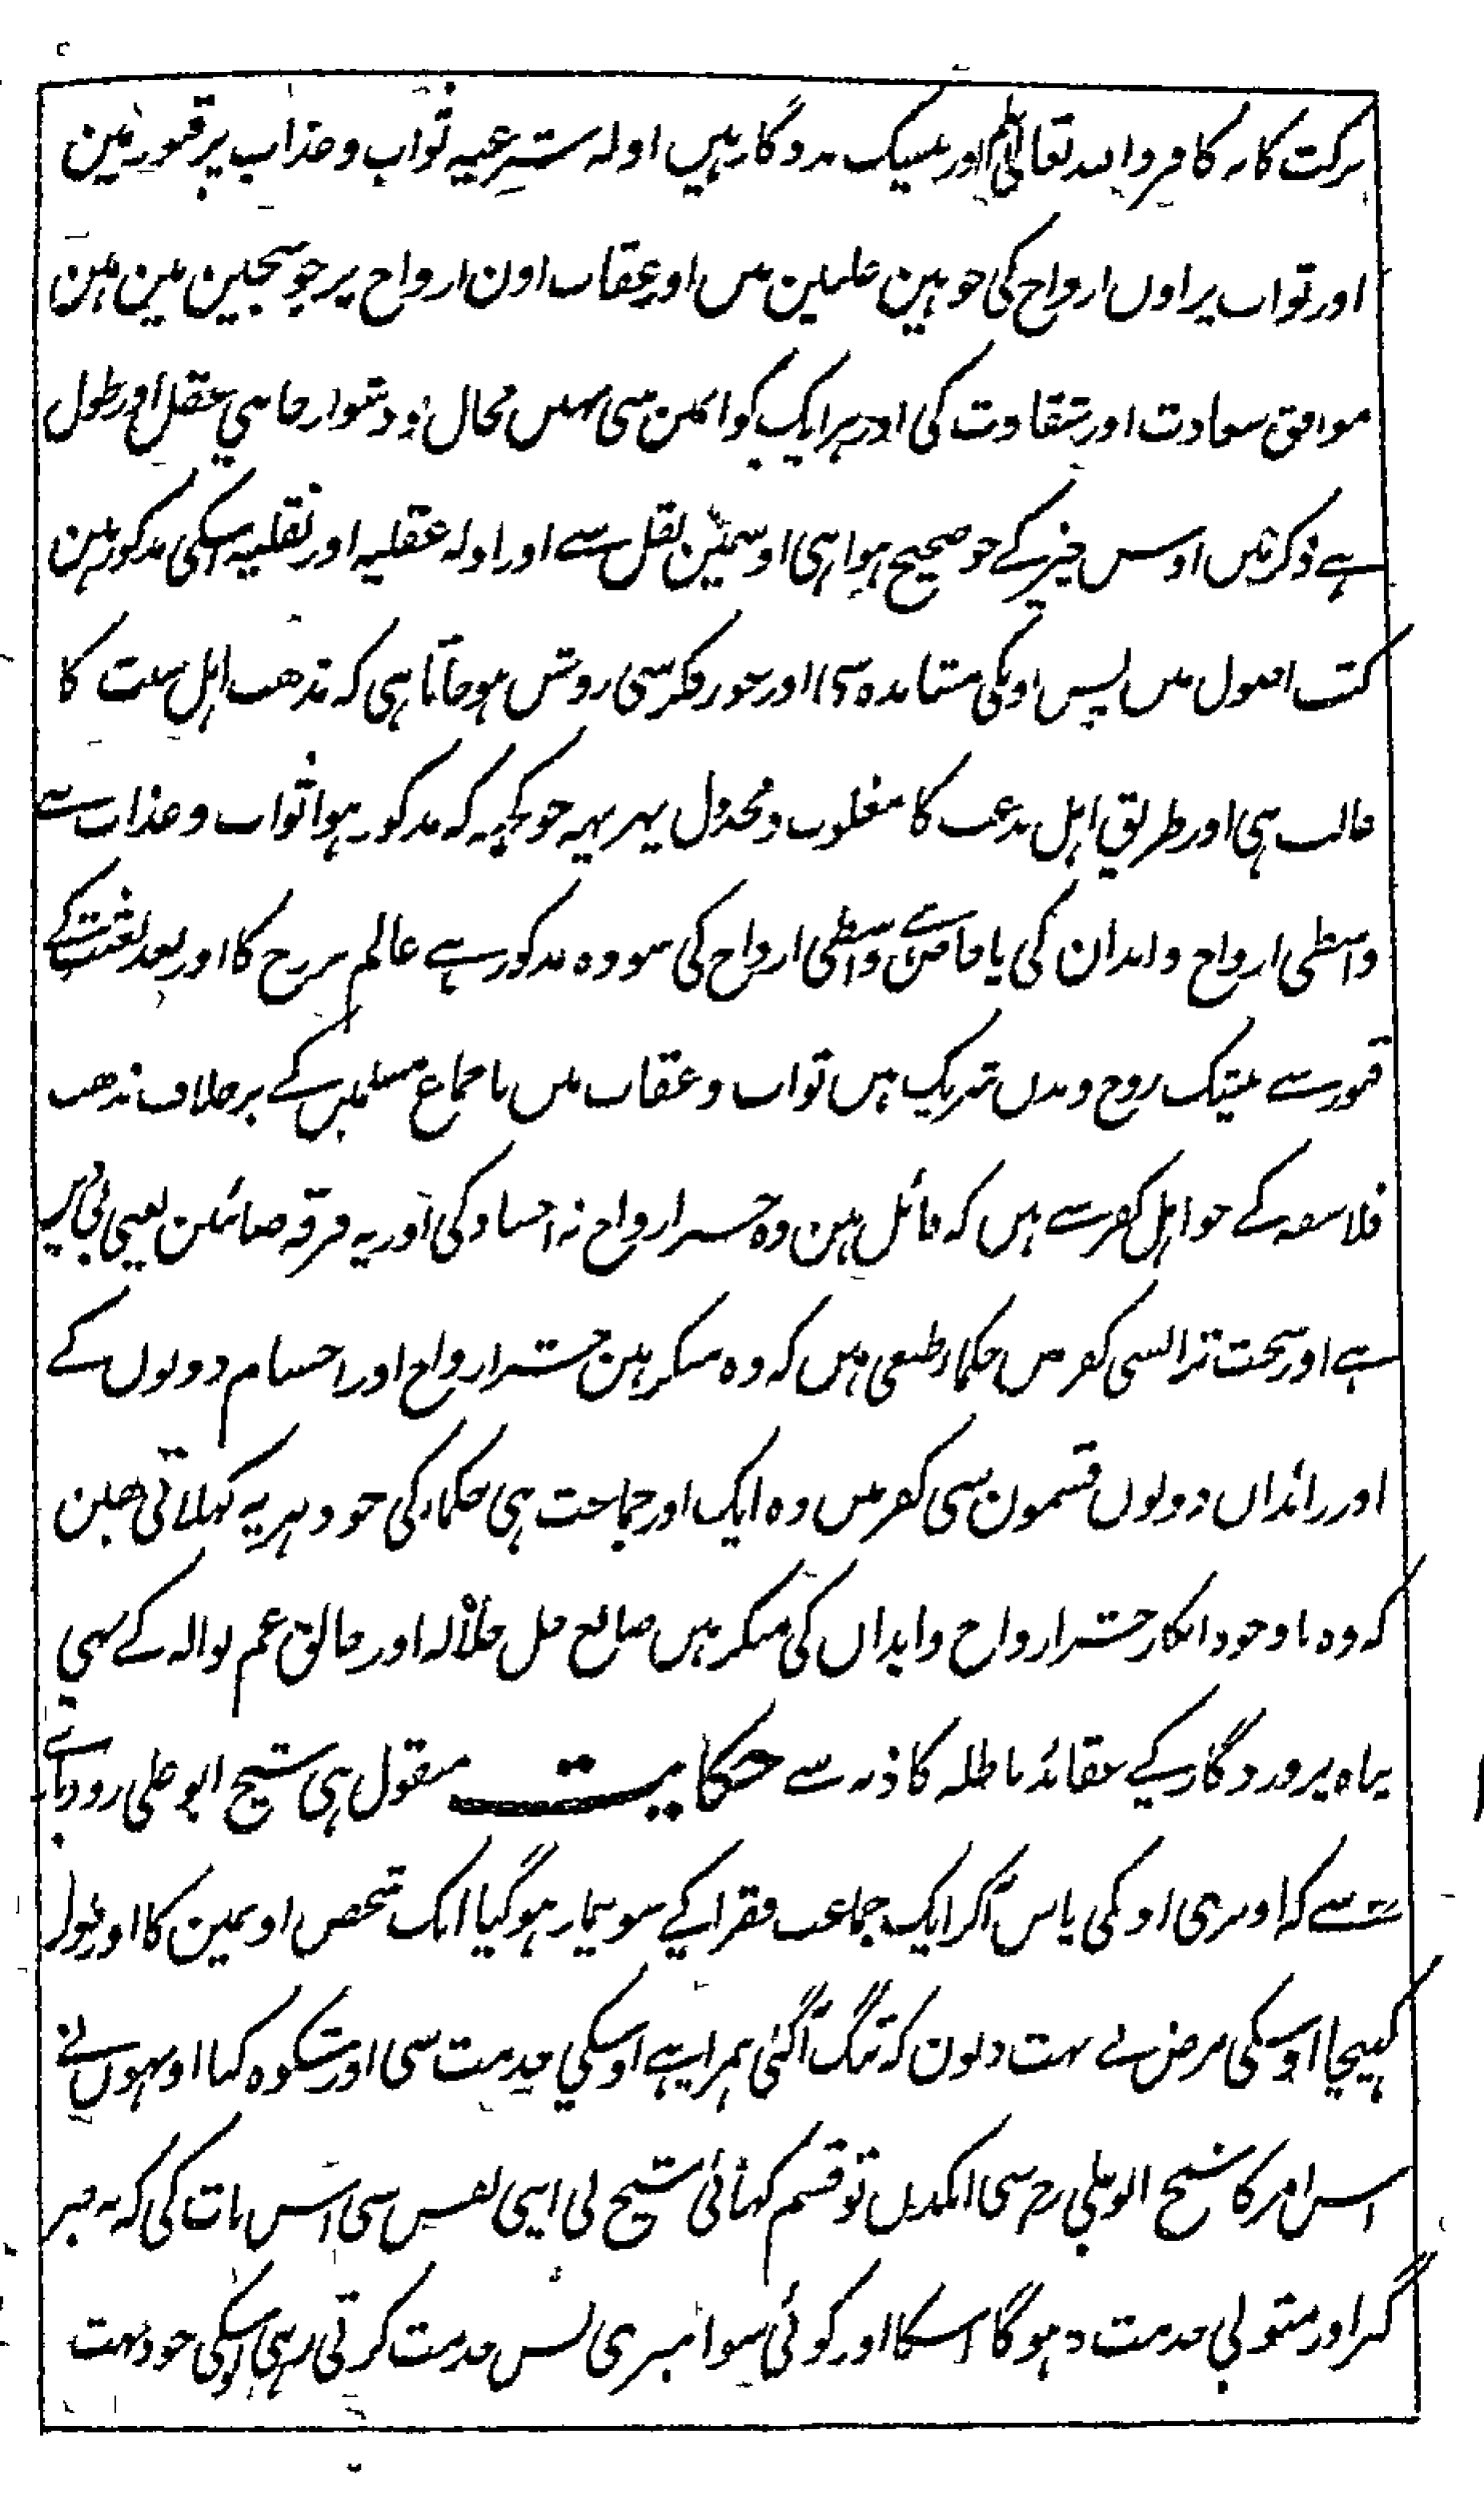 برکت کار کا فروا اللہ تعالیٰ اور بیشک مددگار ہیں اولہ شرعیہ ثواب و عذاب پر قبور مین
اور ثواب پر اون ارواح کی جو ہین علیین مین اور عقاب اون ارواح پر جو سجین مین ہین
موافق سعادت اور شقاوت کی اور ہر ایک کو انمین سی نہیں محال و دشوار جانتی عقل اور طول
ہے ذکر مین اوس چیز کے جو صحیح ہوا ہی اوسمین نقل سے اور ادلہ عقلیہ اور نقلیہ اسکی مذکور ہین
کتب اصول مین پس اونکی مشاہدہ سی اور غور و فکر سی روشن ہو جاتا ہی کہ مذھب اہل سنت کا
غالب ہی اور طریق اہل بدعت کا مغلوب و مخذول پہر یہہ جو کچہہ کہ مذکور ہوا ثواب و عذاب سے
واسطی ارواح و ابدان کی یا خاص واسطی ارواح کی سو وہ مذکور ہے عالم برزخ کا اور بعد بعثت کے
قبور سے بیشک روح و بدن شریک ہین ثواب و عقاب مین باجماع مسلمین کے برخلاف مذھب
فلاسفہ کے جو اہل کفر سے ہین کہ قائل ہین وہ حشر ارواح نہ اجساد کی اور یہ فرقہ صائبین یعنی بی دین
ہے اور سخت تر اسی کفر مین حکماء طبعی ہین کہ وہ منکر ہین حشر ارواح اور اجسام دونوں کے
اور زائد ان دونوں قسمون سی کفر مین وہ ایک اور جماعت ہی حکماء کی جو دہریہ کہلاتی ھین
کہ وہ باوجود انکار حشر ارواح و ابدان کی منکر ہین صانع جل جلالہ اور خالق عم نوالہ کے بہی
پناہ پروردگار کے عقائد باطلہ کاذبہ سے حکایت منقول ہی شیخ ابو علی رودباری
سے کہ اوتری اونکی پاس آکر ایک جماعت فقرا کے سو بیمار ہو گیا ایک شخص اونمین کا اور طول
کہینچا اوسکی مرض نے بہت دنون کہ تنگ آ گئی ہمراہی اوسکی خدمت سی اور شکوہ کیا اونہوں نے
اس امر کا شیخ ابو علی رح سی ایکدن تو قسم کہائی شیخ نی اپنی نفس سی اس بات کی کہ نہ خبر
گیر اور متولی خدمت نہ ہوگا اسکا اور کوئی سوا میری پس خدمت کرتی رہی اوسکی خود بہت